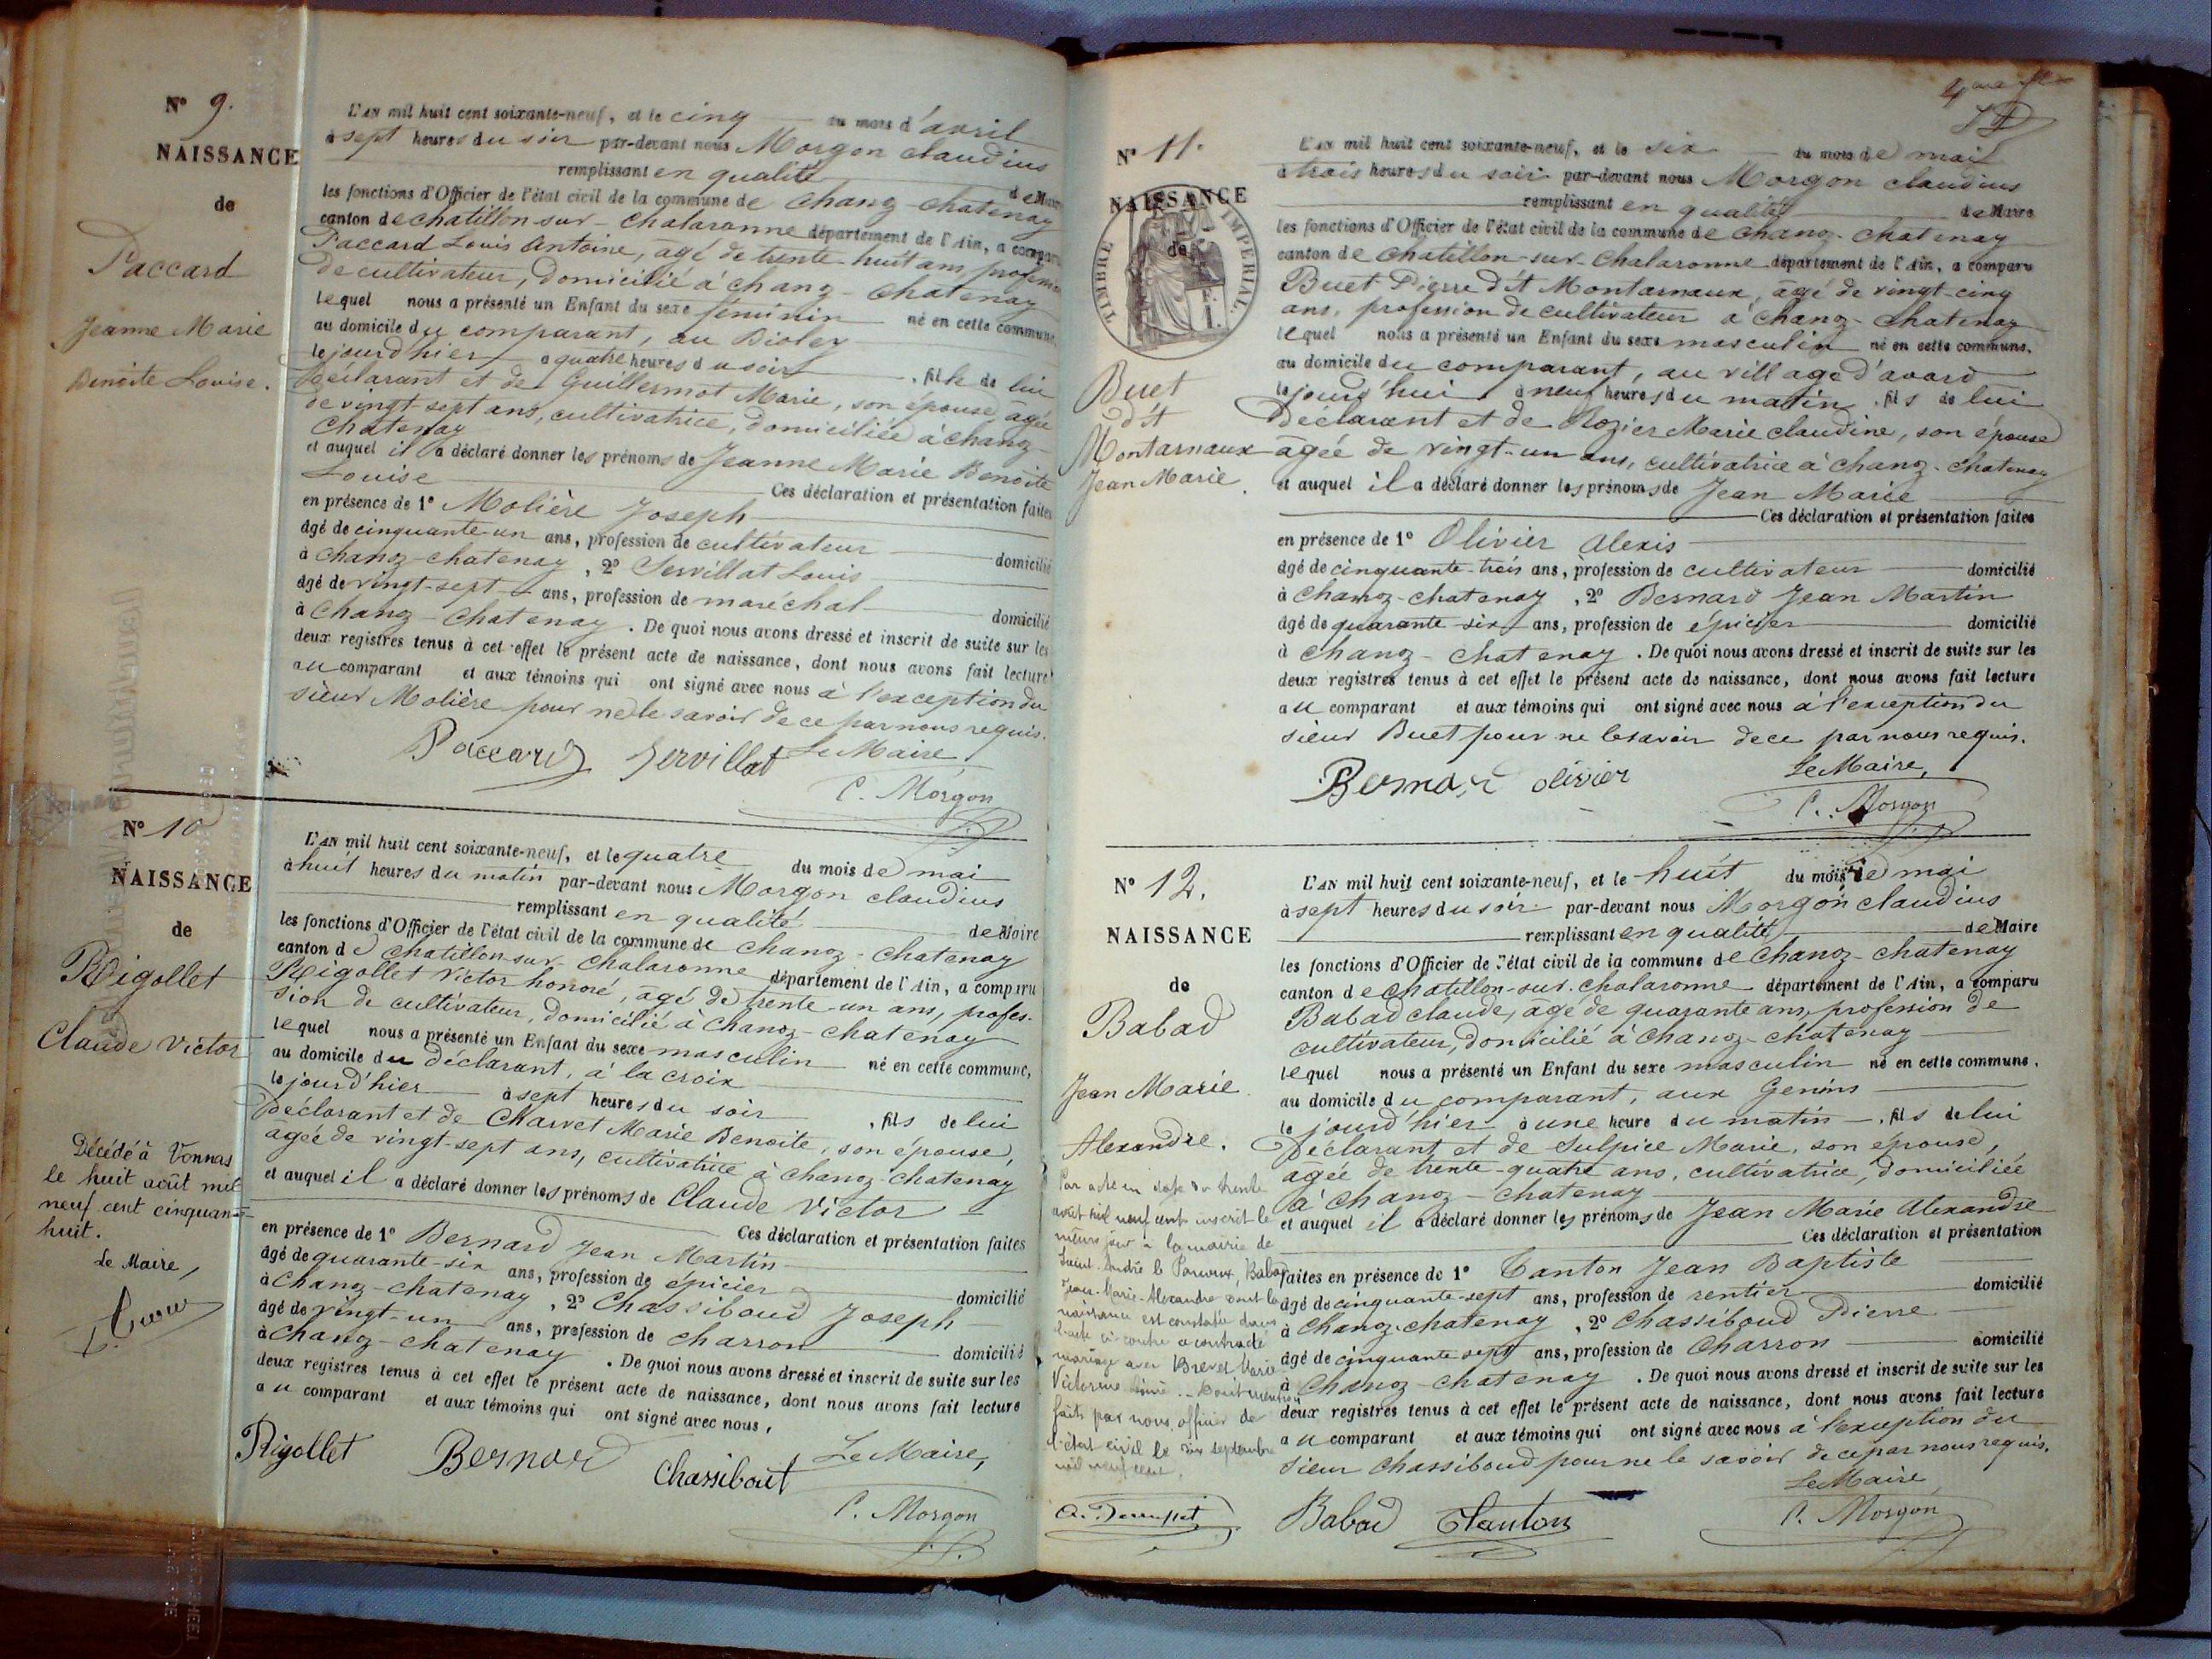 N° 9.
NAISSANCE
de
Paccard
Jeanne Marie
Benoite Louise.
L'AN mil huit cent soixante-neuf, et le cinq du mois d'avril
à sept heures du soir par-devant nous Morgon Claudius
remplissant en qualité de Maire
les fonctions d'Officier de l'état civil de la commune de Chanoz-Chatenay
canton de Chatillon-sur-Chalaronne département de l'Ain, a comparu
Paccard Louis Antoine, âgé de trente-huit ans, profession
de cultivateur, domicilié à Chanoz-Chatenay
lequel nous a présenté un Enfant du sexe féminin né en cette commune,
au domicile du comparant, au
le jourd'hier à quatre heures du soir, fille de lui
Déclarant et de Guillermot Marie, son épouse, âgée
de vingt-sept ans, cultivatrice, domiciliée à Chanoz-
Chatenay
et auquel il a déclaré donner les prénoms de Jeanne Marie Benoite
Louise Ces déclaration et présentation faites
en présence de 1° Molière Joseph
âgé de cinquante-un ans, profession de cultivateur domicilié
à Chanoz-Chatenay, 2° Servillat Louis
âgé de vingt-sept ans, profession de maréchal domicilié
à Chanoz-Chatenay. De quoi nous avons dressé et inscrit de suite sur les
deux registres tenus à cet effet le présent acte de naissance, dont nous avons fait lecture
au comparant et aux témoins qui ont signé avec nous à l'exception du
sieur Molière pour ne le savoir de ce par nous requis.
Paccard Servillat Le Maire,
C. Morgon
N° 10
NAISSANCE
de
Rigollet
Claude Victor
Décédé à Vonnas
le huit août mil
neuf cent cinquante-
huit.
Le Maire,
L'AN mil huit cent soixante-neuf, et le quatre du mois de mai
à huit heures du matin par-devant nous Morgon Claudius
remplissant en qualité de Maire
les fonctions d'Officier de l'état civil de la commune de Chanoz-Chatenay
canton de Chatillon-sur-Chalaronne département de l'Ain, a comparu
Rigollet Victor honoré, âgé de trente-un ans, profes-
sion de cultivateur, domicilié à Chanoz-Chatenay
lequel nous a présenté un Enfant du sexe masculin né en cette commune,
au domicile du déclarant, à la croix
le jourd'hier à sept heures du soir, fils de lui
Déclarant et de Charvet Marie Benoite, son épouse,
âgée de vingt-sept ans, cultivatrice à Chanoz-Chatenay
et auquel il a déclaré donner les prénoms de Claude Victor
Ces déclaration et présentation faites
en présence de 1° Bernard Jean Martin
âgé de quarante-six ans, profession de épicier domicilié
à Chanoz-Chatenay, 2° Chassiboud Joseph
âgé de vingt-un ans, profession de charron domicilié
à Chanoz-Chatenay. De quoi nous avons dressé et inscrit de suite sur les
deux registres tenus à cet effet le présent acte de naissance, dont nous avons fait lecture
au comparant et aux témoins qui ont signé avec nous,
Rigollet Bernard Chassibout Le Maire,
C. Morgon
4me
N° 11.
NAISSANCE
de
TIMBRE IMPERIAL.
Buet
dit
Montarnaux
Jean Marie.
L'AN mil huit cent soixante-neuf, et le six du mois de mai
à trois heures du soir par-devant nous Morgon Claudius
remplissant en qualité de Maire
les fonctions d'Officier de l'état civil de la commune de Chanoz-Chatenay
canton de Chatillon-sur-Chalaronne département de l'Ain, a comparu
Buet Pierre dit Montarnaux, âgé de vingt-cinq
ans, profession de cultivateur à Chanoz-Chatenay
lequel nous a présenté un Enfant du sexe masculin né en cette commune,
au domicile du comparant, au village d'avard
le jourd'hui à neuf heures du matin, fils de lui
Déclarant et de Rozier Marie Claudine, son épouse
âgée de vingt-un ans, cultivatrice à Chanoz-Chatenay
et auquel il a déclaré donner les prénoms de Jean Marie
Ces déclaration et présentation faites
en présence de 1° Olivier Alexis
âgé de cinquante-trois ans, profession de cultivateur domicilié
à Chanoz-Chatenay, 2° Bernard Jean Martin
âgé de quarante-six ans, profession de épicier domicilié
à Chanoz-Chatenay. De quoi nous avons dressé et inscrit de suite sur les
deux registres tenus à cet effet le présent acte de naissance, dont nous avons fait lecture
au comparant et aux témoins qui ont signé avec nous à l'exception du
sieur Buet pour ne le savoir de ce par nous requis.
Bernard olivier Le Maire,
C. Morgon
N° 12.
NAISSANCE
de
Babad
Jean Marie
Alexandre.
Par acte en date du trente
août mil neuf cent inscrit le
même jour à la mairie de
Saint-André le Panoux, Babad
Jean-Marie-Alexandre dont la
naissance est constatée dans
l'acte ci-contre a contracté
mariage avec Brevet Marie
Victorine . Dont mention
faite par nous, officier de
l'état civil le six septembre
mil neuf cent.
L'AN mil huit cent soixante-neuf, et le huit du mois de mai
à sept heures du soir par-devant nous Morgon Claudius
remplissant en qualité de Maire
les fonctions d'Officier de l'état civil de la commune de Chanoz-Chatenay
canton de Chatillon-sur-Chalaronne département de l'Ain, a comparu
Babad Claude, âgé de quarante ans, profession de
cultivateur, domicilié à Chanoz-Chatenay
lequel nous a présenté un Enfant du sexe masculin né en cette commune,
au domicile du comparant, aux Genins
le jourd'hier à une heure du matin, fils de lui
Déclarant et de Sulpice Marie, son épouse,
âgée de trente-quatre ans, cultivatrice, domiciliée
à Chanoz-Chatenay
et auquel il a déclaré donner les prénoms de Jean Marie Alexandre
Ces déclaration et présentation
faites en présence de 1° Tanton Jean Baptiste
âgé de cinquante-sept ans, profession de rentier domicilié
à Chanoz-Chatenay, 2° Chassiboud Pierre
âgé de cinquante-sept ans, profession de Charron domicilié
à Chanoz-Chatenay. De quoi nous avons dressé et inscrit de suite sur les
deux registres tenus à cet effet le présent acte de naissance, dont nous avons fait lecture
au comparant et aux témoins qui ont signé avec nous à l'exception du
sieur Chassiboud pour ne le savoir de ce par nous requis.
Le Maire,
Babad Tanton C. Morgon